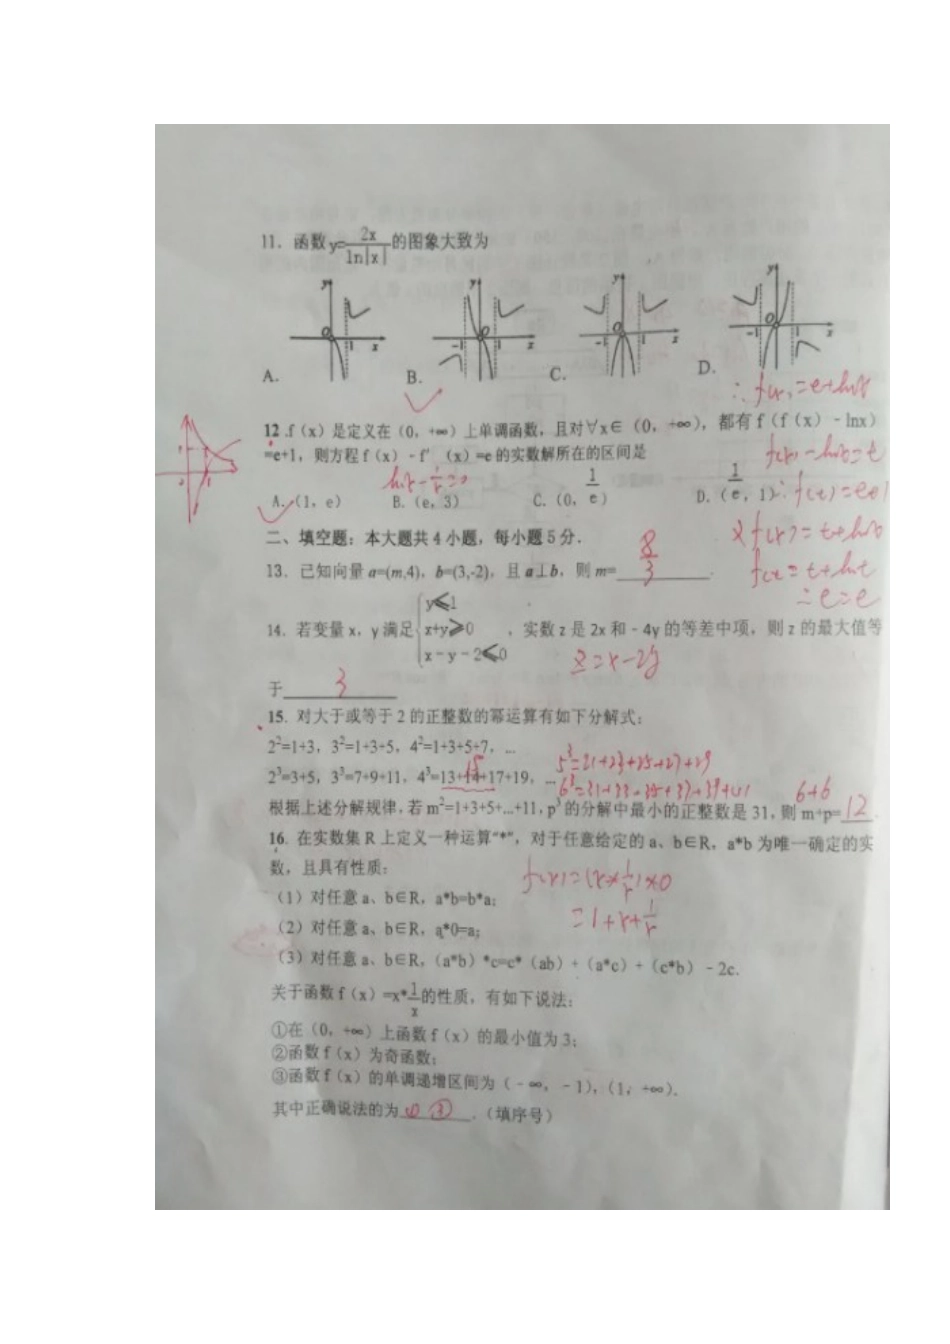 11. 函数 y=2x/ln|x| 的图象大致为
A. B. C. D.
∴ f(x)=e+lnx
12 .f（x）是定义在（0，+∞）上单调函数，且对∀x∈（0，+∞），都有 f（f（x）- lnx）
=e+1，则方程 f（x）- f′（x）=e 的实数解所在的区间是
f(x)-lnx=t
lnx-1/x=0
A.（1，e） B.（e，3） C.（0，1/e） D.（1/e，1）
∴f(t)=e+1
二、填空题：本大题共 4 小题，每小题 5 分．
又f(x)=t+lnx
13．已知向量 a=(m,4)，b=(3,-2)，且 a⊥b，则 m= 8/3 .
f(t)=t+lnt
∴e=e
14．若变量 x，y 满足 { y≤1 x+y≥0 x-y-2≤0 ，实数 z 是 2x 和 - 4y 的等差中项，则 z 的最大值等
z=x-2y
于 3
15. 对大于或等于 2 的正整数的幂运算有如下分解式：
2²=1+3，3²=1+3+5，4²=1+3+5+7，…
5³=21+23+25+27+29
2³=3+5，3³=7+9+11，4³=13+15+17+19，…
6³=31+33+35+37+39+41
6+6
根据上述分解规律，若 m²=1+3+5+…+11，p³ 的分解中最小的正整数是 31，则 m+p= 12 .
16. 在实数集 R 上定义一种运算“*”，对于任意给定的 a、b∈R，a*b 为唯一确定的实
数，且具有性质：
f(x)=(x*1/x)*0
（1）对任意 a、b∈R，a*b=b*a；
=1+x+1/x
（2）对任意 a、b∈R，a*0=a；
（3）对任意 a、b∈R，（a*b）*c=c*（ab）+（a*c）+（c*b）- 2c.
关于函数 f（x）=x*1/x 的性质，有如下说法：
①在（0，+∞）上函数 f（x）的最小值为 3；
②函数 f（x）为奇函数；
③函数 f（x）的单调递增区间为（- ∞，- 1），（1，+∞）.
其中正确说法的为 ① ③ .（填序号）